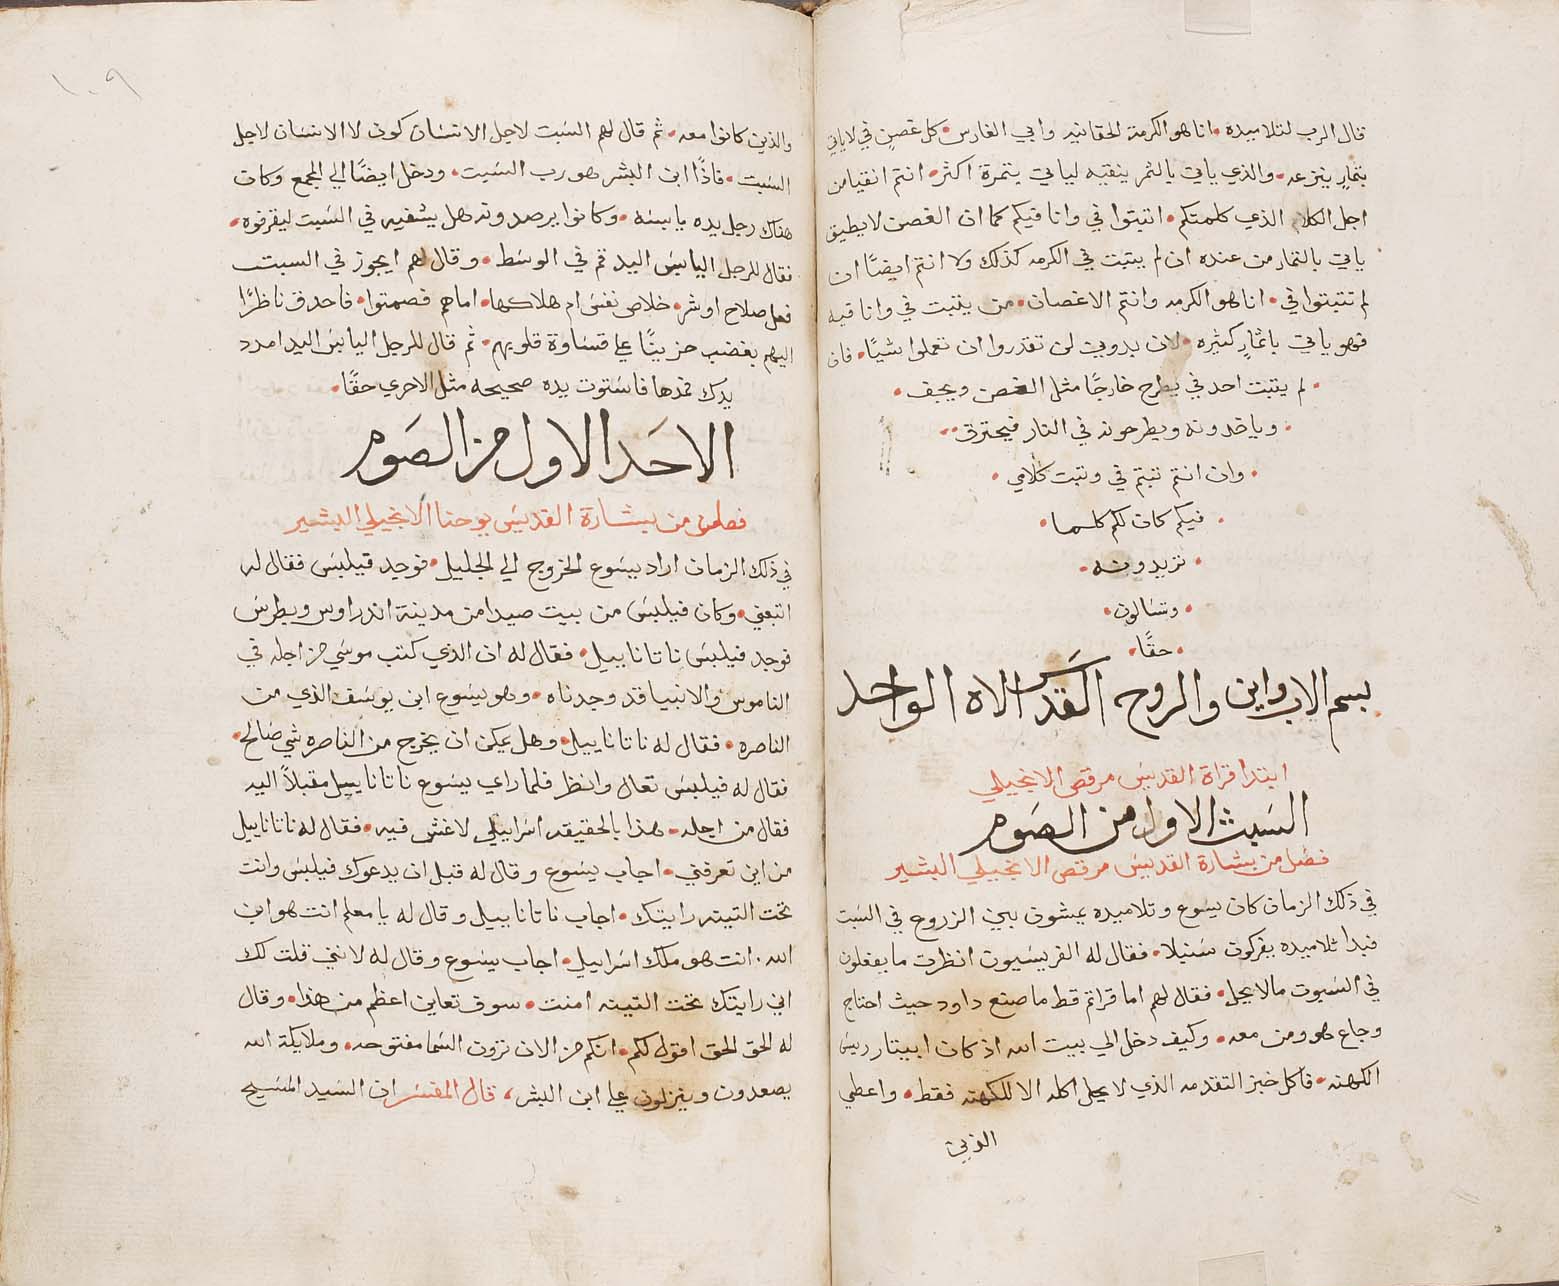 قال الرب لتلاميذه • انا هو الكرمة الحقانيه وابي الغارس • كل غصن في لا ياتي
بثمار ينزعه • والذي ياتي بالثمر ينقيه لياتي بثمرة اكثر • انتم انقيا من
اجل الكلام الذي كلمتكم • اثبتوا في وانا فيكم كما ان الغصن لا يطيق
ياتي بالثمار من عنده ان لم يثبت في الكرمه كذلك ولا انتم ايضًا ان
لم تثبتوا في • انا هو الكرمه وانتم الاغصان • من يثبت في وانا فيه
فهو ياتي باثمارٍ كثيره • لان بدوني لن تقدروا ان تعملوا شيًا • فان
• لم يثبت احد في يطرح خارجًا مثل الغصن ويجف •
• وياخدونه ويطرحونه في النار فيحترق ••
• وان انتم ثبتم في وثبت كلامي •
• فيكم كان لكم كلما •
• تريدونه •
• وتسالون •
• حقًا •
بسم الاب وابن والروح القدس الاه الواحد
ابتدا قراة القديس مرقص الانجيلي
السَبت الاول من الصَوم
فصْل من بشارة القديس مرقص الانجيلي البشير
في ذلك الزمان كان يسوع وتلاميذه يمشون بين الزروع في السَبت
فبدا تلاميذه يفركون سنبلا • فقال له الفريسيون انظرت ما يفعلون
في السبوت ما لا يحل • فقال لهم اما قراتم قط ما صنع داود حيث احتاج
وجاع هو ومن معه • وكيف دخل الي بيت الله اذ كان ابيتار رييس
الكهنه • فاكل خبز التقدمه الذي لا يحل اكله الا للكهنه فقط • واعطي
الذين
١٠٩
والذين كانوا معه • ثم قال لهم السَبت لاجل الانسَان كون لا الانسَان لاجل
السَبت • فاذًا ابن البشر هو رب السَبت • ودخل ايضًا الي المجمع وكان
هناك رجل يده يابسه • وكانوا يرصدونه هل يشفيه في السَبت ليقرفوه •
فقال للرجل اليابس اليد قم في الوسط • وقال لهم ايجوز في السبت
فعل صلاح او شر • خلاص نفس ام هلاكها • اما هم فصمتوا • فاحدق ناظرًا
اليهم بغضب حزينًا علي قساوة قلوبهم • ثم قال للرجل اليابس اليد امدد
يدك فمدها فاستوت يده صحيحه مثل الاخري حقًا •
الاحَد الاول من الصَوم
فصل من بشارة القديس يوحنا الانجيلي البشير
في ذلك الزمان اراد يسوع الخروج الي الجليل • فوجد فيلبس فقال له
اتبعني • وكان فيلبس من بيت صيدا من مدينة اندراوس وبطرس
فوجد فيلبس ناتاناييل • فقال له ان الذي كتب موسي من اجله في
الناموس والانبيا قد وجدناه • وهو يسوع ابن يوسف الذي من
الناصره • فقال له ناتاناييل • وهل يمكن ان يخرج من الناصره شي صالح •
فقال له فيلبس تعال وانظر فلما راي يسوع ناتاناييل مقبلاً اليه
فقال من اجله • هذا بالحقيقه اسراييلي لا غش فيه • فقال له ناتاناييل
من اين تعرفني • اجاب يسوع وقال له قبل ان يدعوك فيلبس وانت
تحت التينه رايتك • اجاب ناتاناييل وقال له يا معلم انت هو ابن
الله • انت هو ملك اسراييل • اجاب يسوع وقال له لانني قلت لك
اني رايتك تحت التينه امنت • سوف تعاين اعظم من هذا • وقال
له الحق الحق اقول لكم • انكم من الان ترون السَما مفتوحه • وملايكة الله
يصعدون وينزلون علي ابن البشر ، قال المفسَر ان السَيد المسَيح